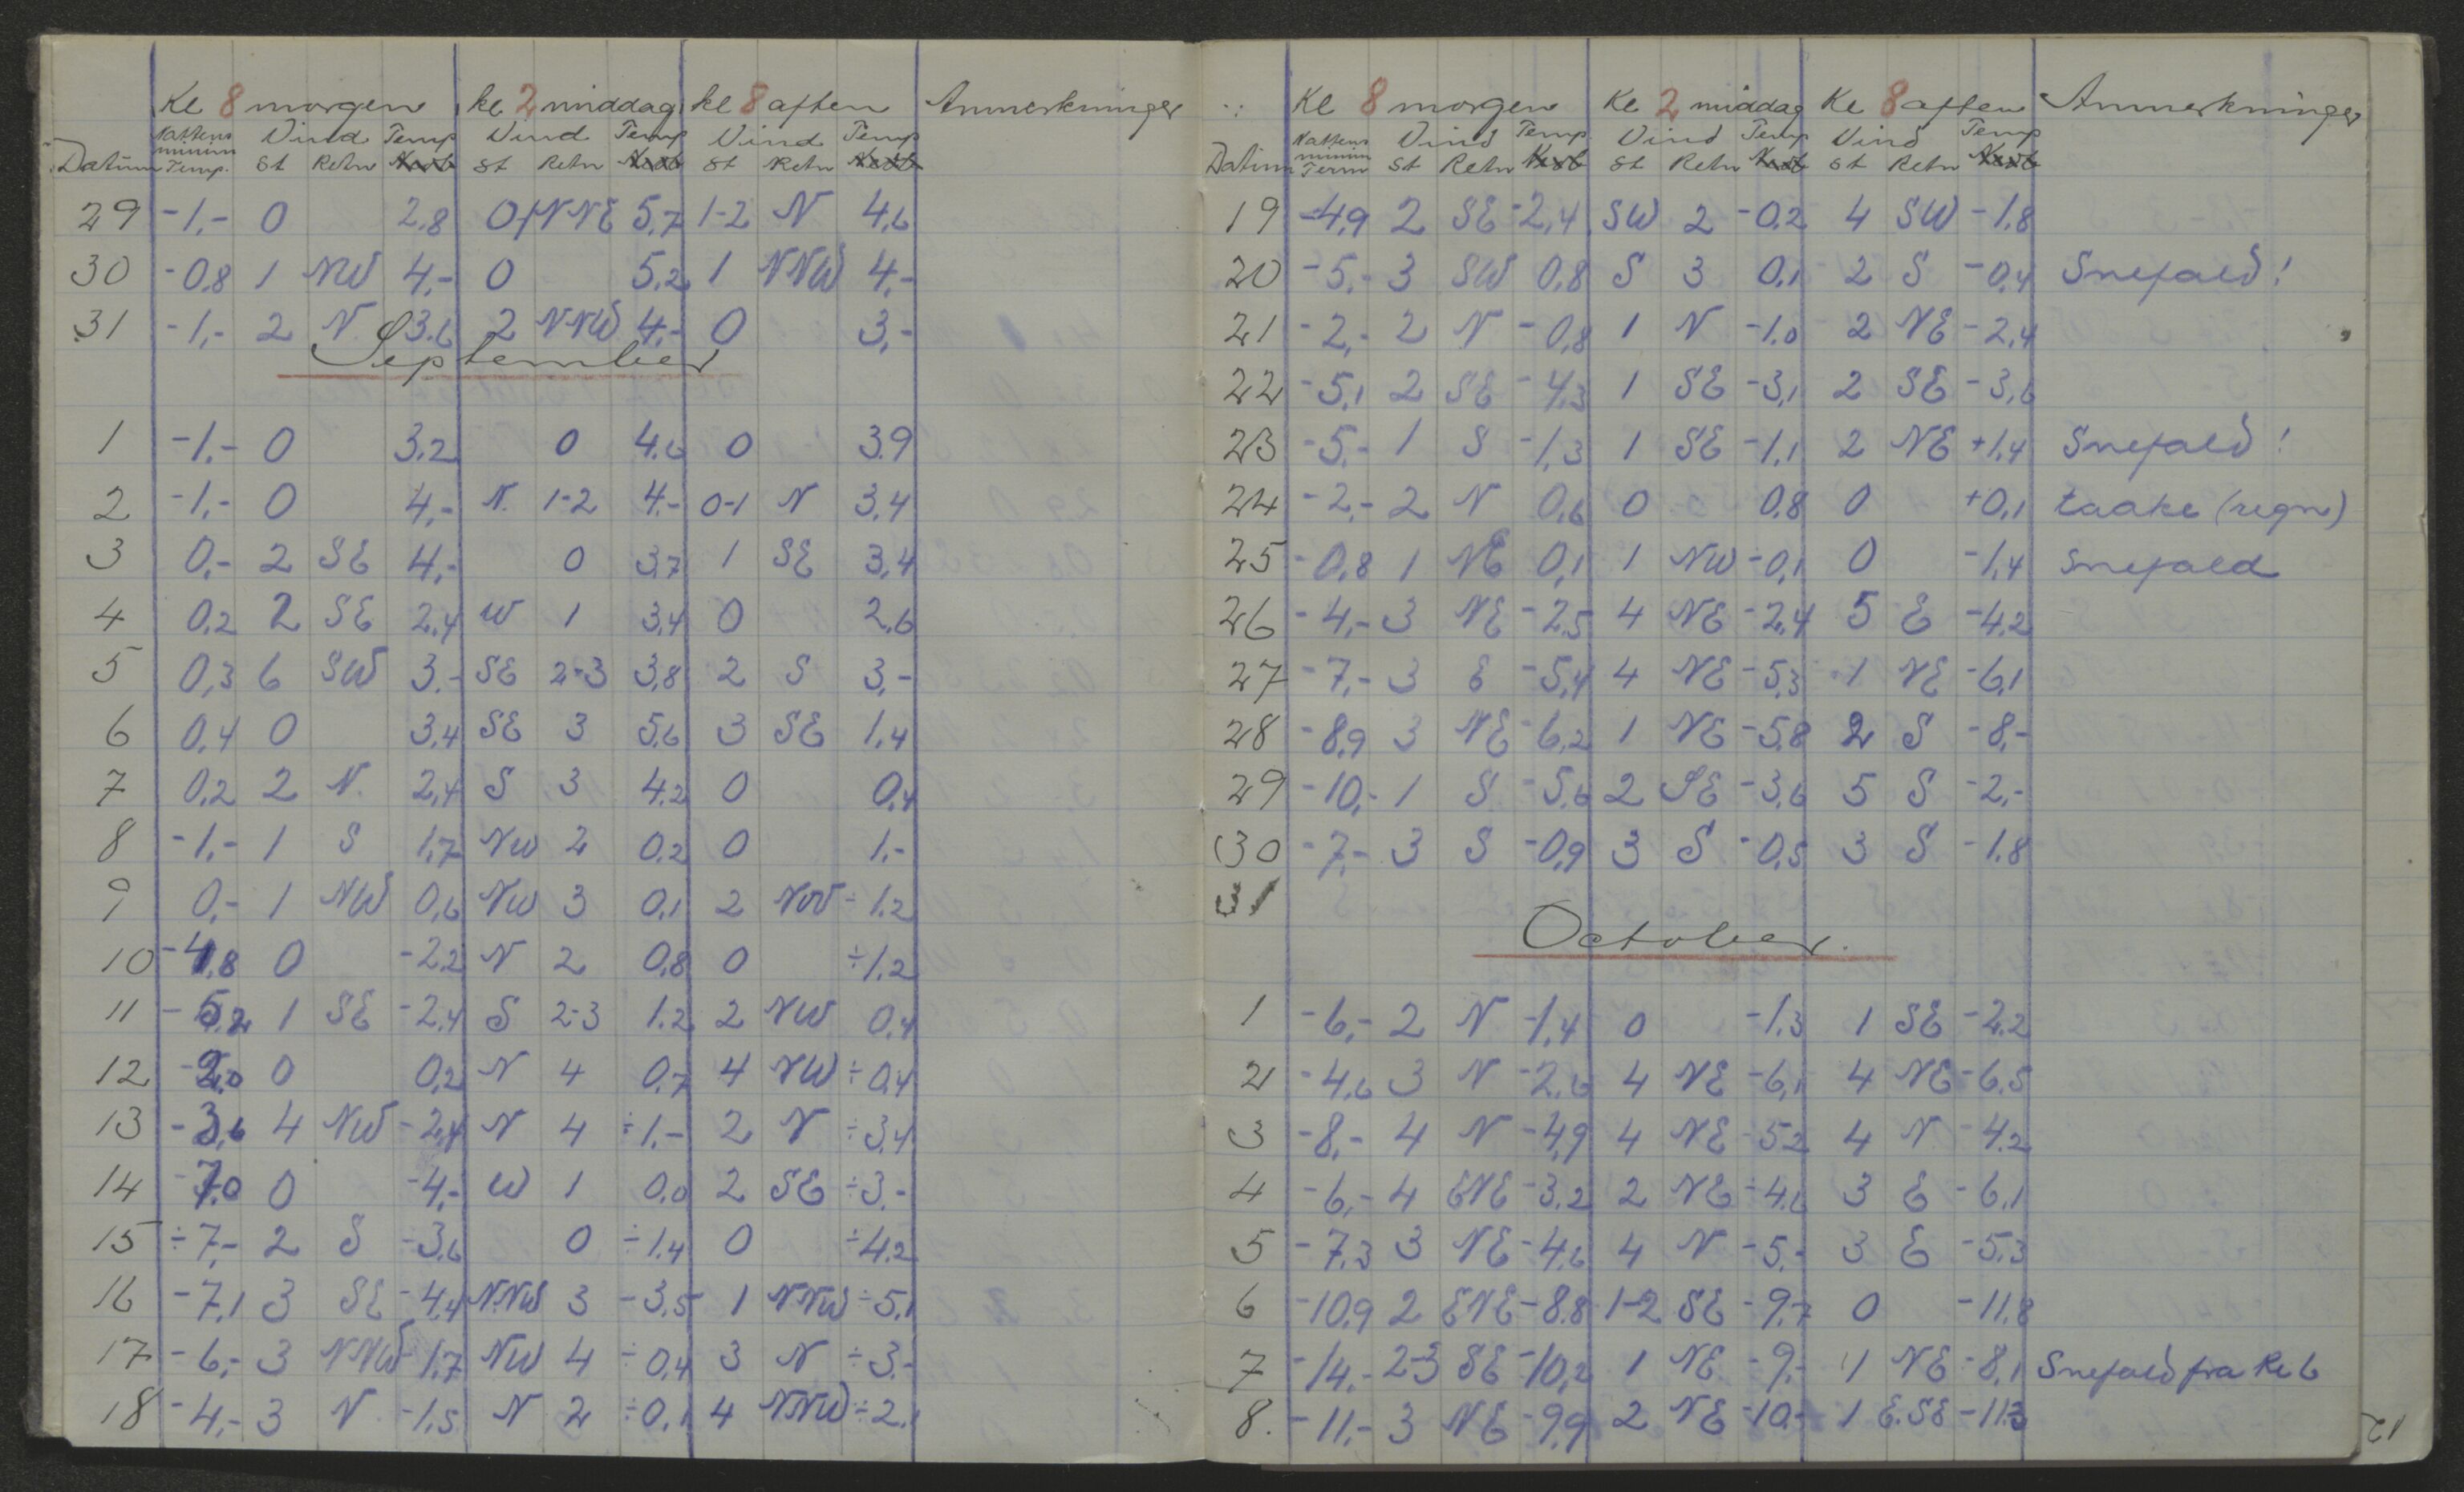 Kl 8 morgen kl 2 middag kl 8 aften Anmerkninger
Nattens minim Temp. Vind Temp Vind Temp Vind Temp
Datum St Retn St Retn St Retn
29 -1,- 0 2,8 0/1 NNE 5,7 1-2 N 4,6
30 -0,8 1 NW 4,- 0 5,2 1 NNW 4,-
31 -1,- 2 N. 3,6 2 NNW 4,- 0 3,-
September
1 -1,- 0 3,2 0 4,6 0 3,9
2 -1,- 0 4,- N. 1-2 4,- 0-1 N 3,4
3 0,- 2 SE 4,- 0 3,7 1 SE 3,4
4 0,2 2 SE 2,4 W 1 3,4 0 2,6
5 0,3 6 SW 3,- SE 2-3 3,8 2 S 3,-
6 0,4 0 3,4 SE 3 5,6 3 SE 1,4
7 0,2 2 N. 2,4 S 3 4,2 0 0,4
8 -1,- 1 S 1,7 NW 2 0,2 0 1,-
9 0,- 1 NW 0,6 NW 3 0,1 2 NW ÷1,2
10 -4,8 0 -2,2 N 2 0,8 0 ÷1,2
11 -5,2 1 SE -2,4 S 2-3 1,2 2 NW 0,4
12 -2,0 0 0,2 N 4 0,7 4 NW ÷0,4
13 -3,6 4 NW -2,4 N 4 ÷1,- 2 N ÷3,4
14 -7,0 0 -4,- W 1 0,0 2 SE ÷3,-
15 ÷7,- 2 S -3,6 0 ÷1,4 0 ÷4,2
16 -7,1 3 SE -4,4 N.NW 3 -3,5 1 NNW ÷5,1
17 -6,- 3 NNW -1,7 NW 4 ÷0,4 3 N ÷3,-
18 -4,- 3 N. -1,5 N 2 ÷0,1 4 NNW ÷2,1
Kl 8 morgen Kl 2 middag Kl 8 aften Anmerkninger
Nattens minim Term Vind Temp Vind Temp Vind Temp
Datum St Retn St Retn St Retn
19 -4,9 2 SE -2,4 SW 2 -0,2 4 SW -1,8
20 -5,- 3 SW 0,8 S 3 0,1 2 S -0,4 Snefald!
21 -2,- 2 N -0,8 1 N -1,0 2 NE -2,4
22 -5,1 2 SE -4,3 1 SE -3,1 2 SE -3,6
23 -5,- 1 S -1,3 1 SE -1,1 2 NE +1,4 Snefald!
24 -2,- 2 N 0,6 0 0,8 0 +0,1 taake (regn)
25 -0,8 1 NE 0,1 1 NW -0,1 0 -1,4 Snefald
26 -4,- 3 NE -2,5 4 NE -2,4 5 E -4,2
27 -7,- 3 E -5,4 4 NE -5,3 1 NE -6,1
28 -8,9 3 NE -6,2 1 NE -5,8 2 S -8,-
29 -10,- 1 S -5,6 2 SE -3,6 5 S -2,-
30 -7,- 3 S -0,9 3 S -0,5 3 S -1,8
31
October.
1 -6,- 2 N -1,4 0 -1,3 1 SE -2,2
2 -4,6 3 N -2,6 4 NE -6,1 4 NE -6,5
3 -8,- 4 N -4,9 4 NE -5,2 4 N -4,2
4 -6,- 4 ENE -3,2 2 NE -4,6 3 E -6,1
5 -7,3 3 NE -4,6 4 N -5,- 3 E -5,3
6 -10,9 2 ENE -8,8 1-2 SE -9,7 0 -11,8
7 -14,- 2-3 SE -10,2 1 NE -9,- 1 NE -8,1 Snefald fra Kl 6
8. -11,- 3 NE -9,9 2 NE -10,- 1 E.SE -11,3
12